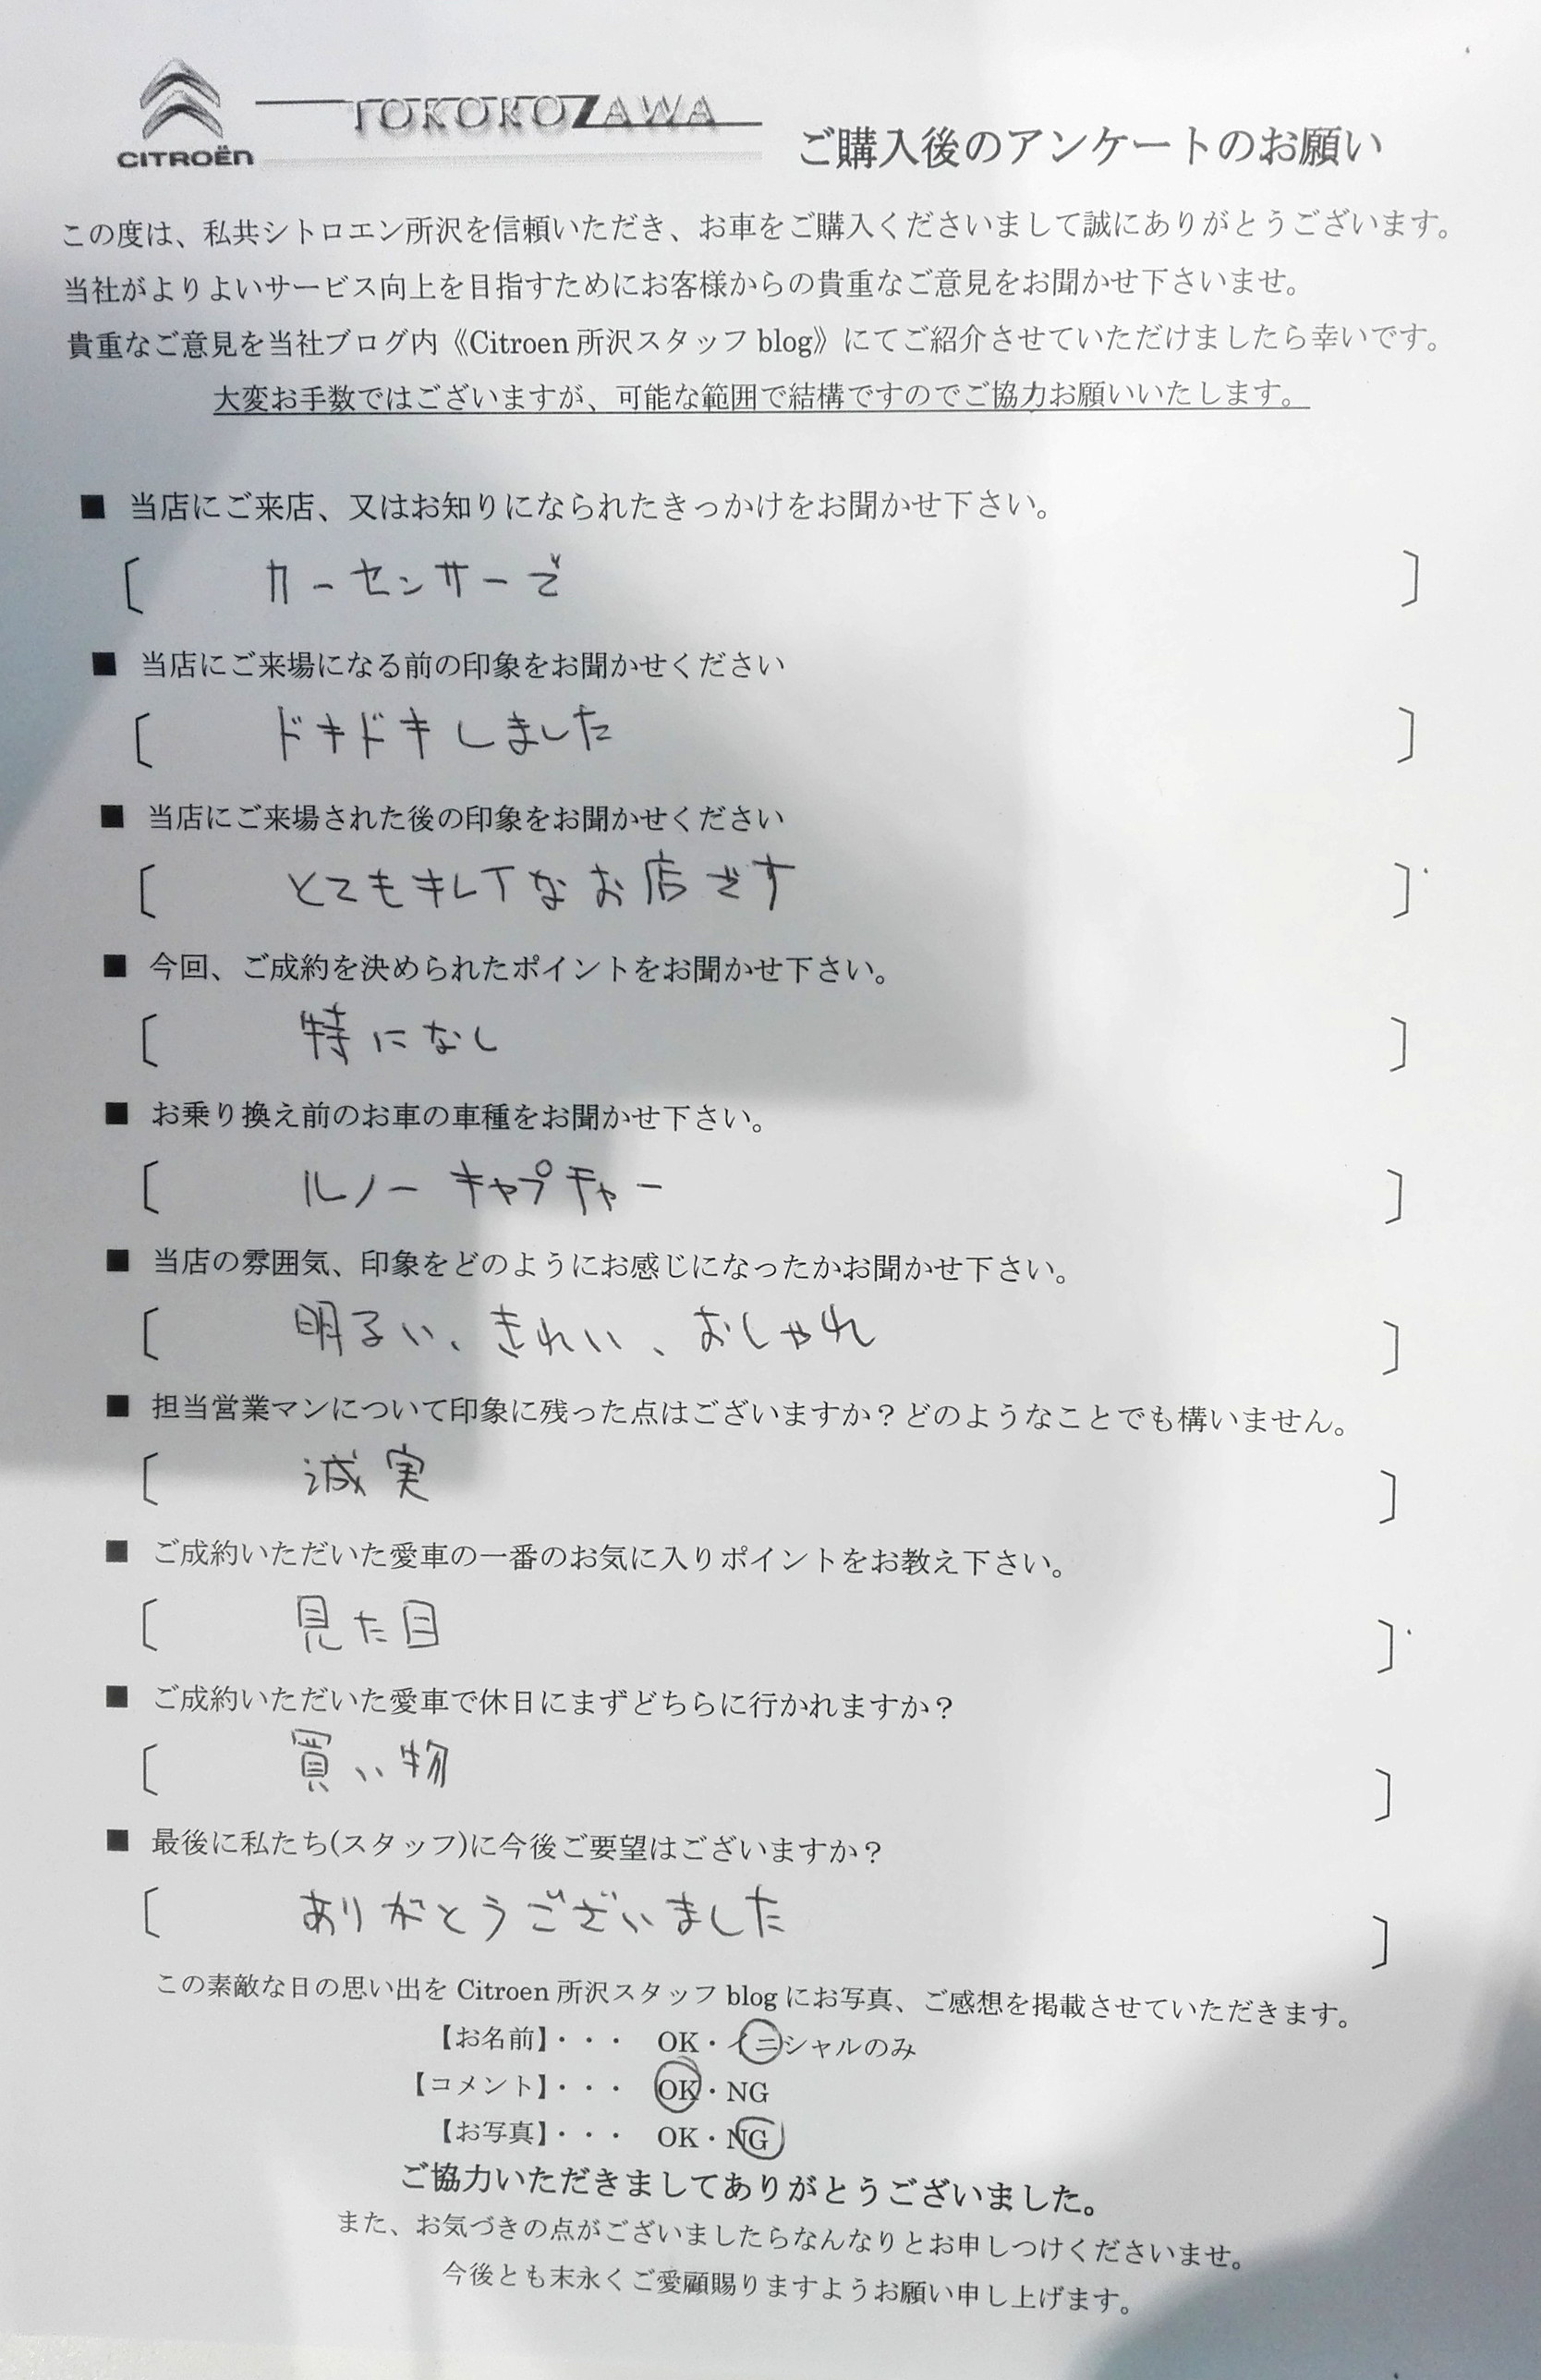 CITROËN
TOKOROZAWA
ご購入後のアンケートのお願い
この度は、私共シトロエン所沢を信頼いただき、お車をご購入くださいまして誠にありがとうございます。
当社がよりよいサービス向上を目指すためにお客様からの貴重なご意見をお聞かせ下さいませ。
貴重なご意見を当社ブログ内《Citroen 所沢スタッフ blog》にてご紹介させていただけましたら幸いです。
大変お手数ではございますが、可能な範囲で結構ですのでご協力お願いいたします。
■ 当店にご来店、又はお知りになられたきっかけをお聞かせ下さい。
〔 カーセンサーで 〕
■ 当店にご来場になる前の印象をお聞かせください
〔 ドキドキしました 〕
■ 当店にご来場された後の印象をお聞かせください
〔 とてもキレイなお店です 〕
■ 今回、ご成約を決められたポイントをお聞かせ下さい。
〔 特になし 〕
■ お乗り換え前のお車の車種をお聞かせ下さい。
〔 ルノー キャプチャー 〕
■ 当店の雰囲気、印象をどのようにお感じになったかお聞かせ下さい。
〔 明るい、きれい、おしゃれ 〕
■ 担当営業マンについて印象に残った点はございますか？どのようなことでも構いません。
〔 誠実 〕
■ ご成約いただいた愛車の一番のお気に入りポイントをお教え下さい。
〔 見た目 〕
■ ご成約いただいた愛車で休日にまずどちらに行かれますか？
〔 買い物 〕
■ 最後に私たち(スタッフ)に今後ご要望はございますか？
〔 ありがとうございました 〕
この素敵な日の思い出を Citroen 所沢スタッフ blog にお写真、ご感想を掲載させていただきます。
【お名前】・・・ OK・イニシャルのみ
【コメント】・・・ OK・NG
【お写真】・・・ OK・NG
ご協力いただきましてありがとうございました。
また、お気づきの点がございましたらなんなりとお申しつけくださいませ。
今後とも末永くご愛顧賜りますようお願い申し上げます。